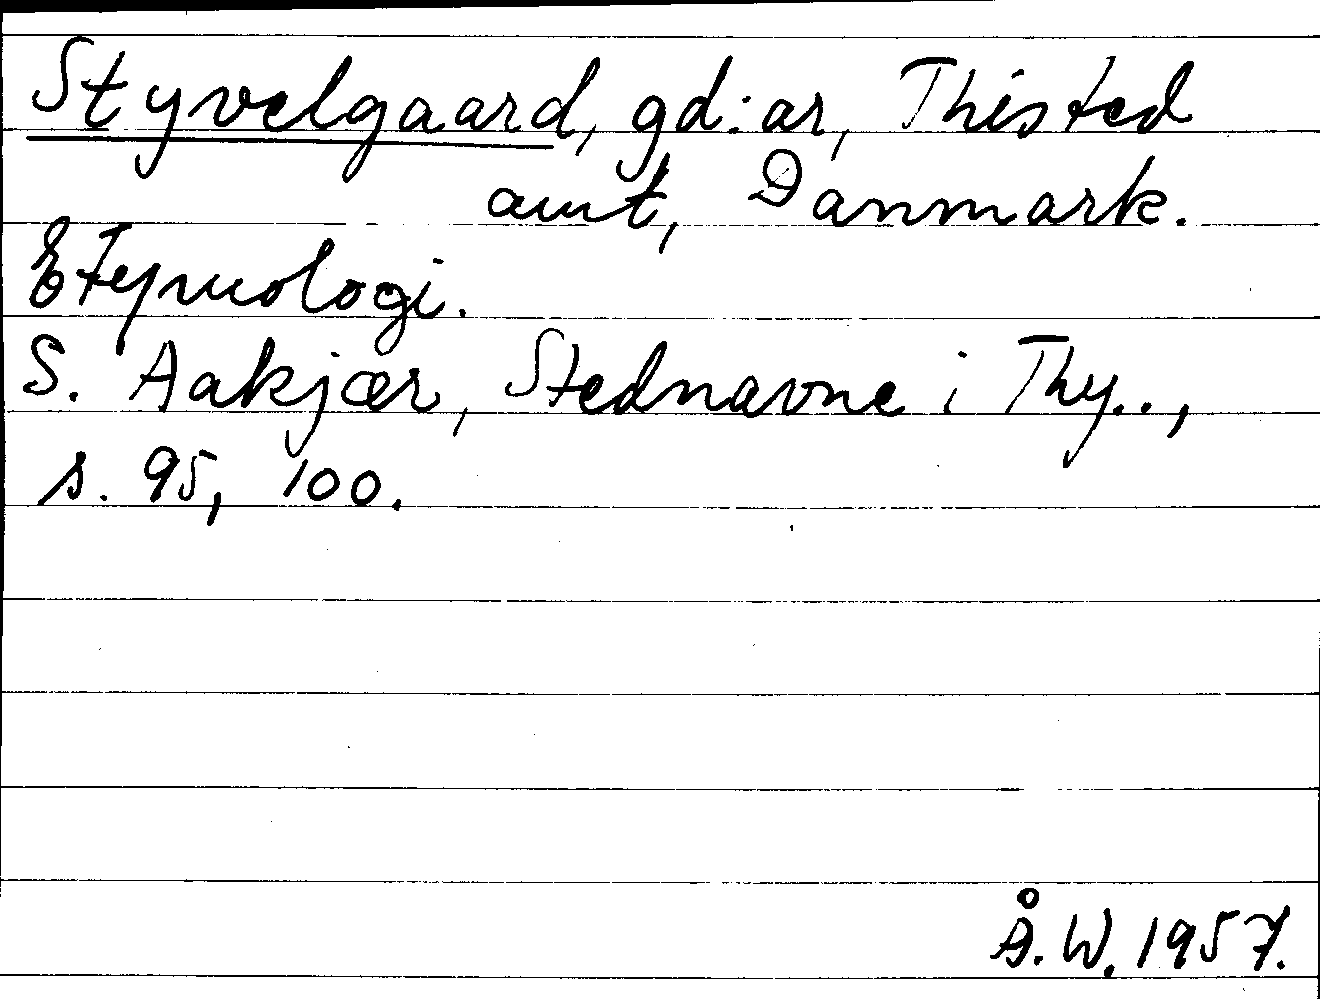 Styvelgaard, gd:ar, Thisted
amt, Danmark.
Etymologi.
S. Aakjær, Stednavne i Thy..,
s. 95, 100.
Å.W. 1957.